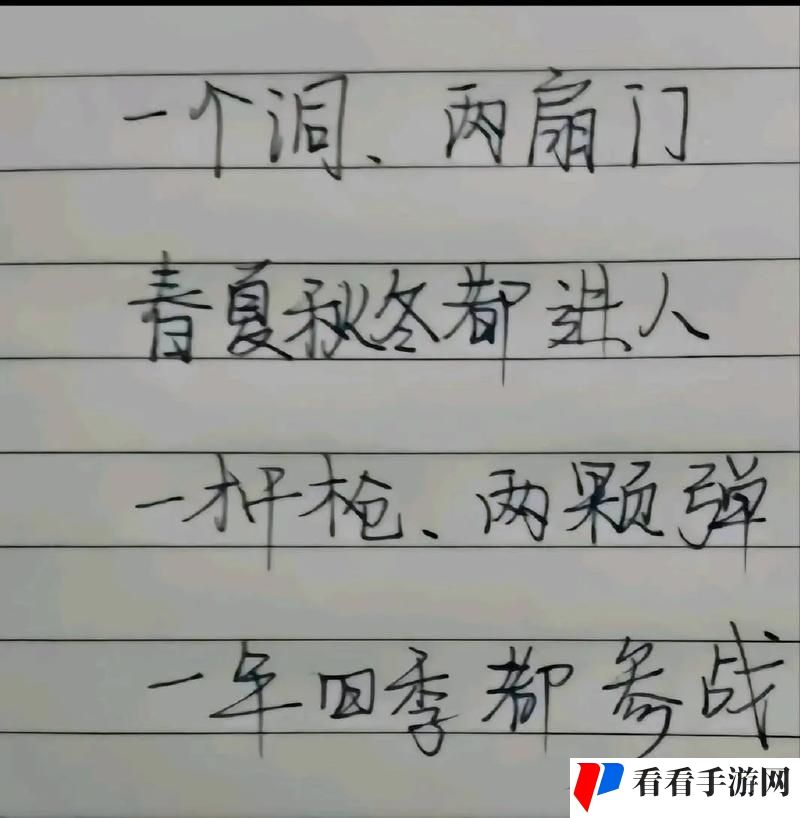 一个洞、两扇门
春夏秋冬都进人
一杆枪、两颗弹
一年四季都参战
看看手游网